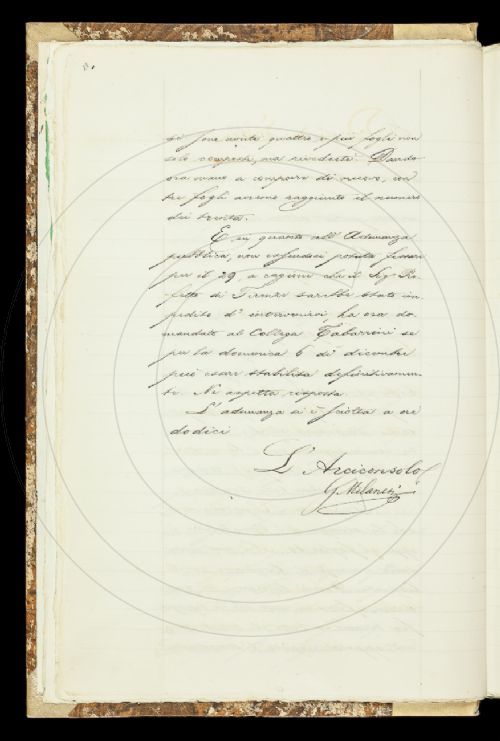 si sono avute quattro e più fogli non
solo composti, ma rivedute. Dando
ora mano a comporre di nuovo, con
tre fogli avremo raggiunto il numero
dei trenta.
E in quanto all' Adunanza
pubblica, non essendosi potuta fissare
per il 29, a cagione che il Sig. Pre
fetto di Firenze sarebbe stato im
pedito d' intervenirvi, ha ora do
mandato al Collega Tabarrini se
per la domenica 6 di dicembre
può essere stabilita definitivamen
te. Ne aspetta risposta.
L' adunanza si è sciolta a ore
dodici
L' Arciconsolo
G. Milanesi